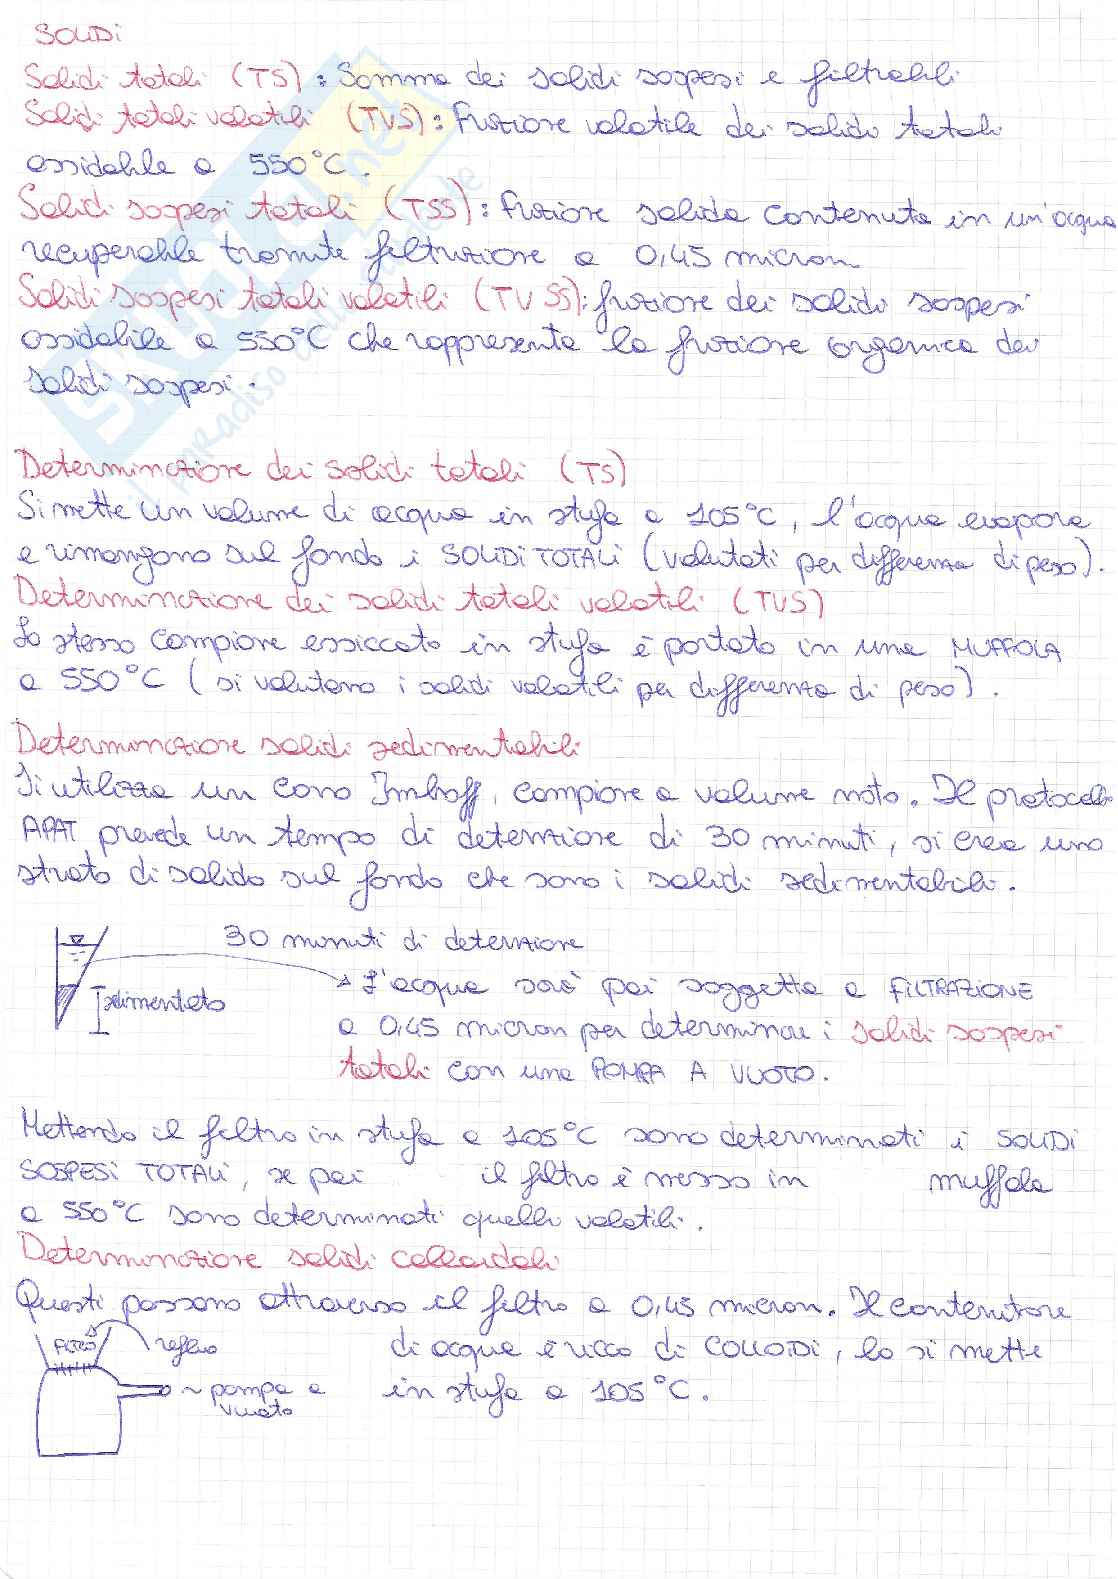 SOLIDI
Solidi totali (TS): Somma dei solidi sospesi e filtrabili
Solidi totali volatili (TVS): frazione volatile dei solidi totali
ossidabile a 550°C.
Solidi sospesi totali (TSS): frazione solida contenuta in un'acqua
recuperabile tramite filtrazione a 0,45 micron
Solidi sospesi totali volatili (TVSS): frazione dei solidi sospesi
ossidabile a 550°C che rappresenta la frazione organica dei
solidi sospesi.
Determinazione dei solidi totali (TS)
Si mette un volume di acqua in stufa a 105°C, l'acqua evapora
e rimangono sul fondo i SOLIDI TOTALI (valutati per differenza di peso).
Determinazione dei solidi totali volatili (TVS)
Lo stesso campione essiccato in stufa è portato in una MUFFOLA
a 550°C (si valutano i solidi volatili per differenza di peso).
Determinazione solidi sedimentabili
Si utilizza un cono Imhoff, campione a volume noto. Il protocollo
APAT prevede un tempo di detenzione di 30 minuti, si crea uno
strato di solido sul fondo che sono i solidi sedimentabili.
30 minuti di detenzione
sedimentato
L'acqua sarà poi soggetta a FILTRAZIONE
a 0,45 micron per determinare i solidi sospesi
totali con una POMPA A VUOTO.
Mettendo il filtro in stufa a 105°C sono determinati i SOLIDI
SOSPESI TOTALI, se poi il filtro è messo in muffola
a 550°C sono determinati quelli volatili.
Determinazione solidi colloidali
Questi passano attraverso il filtro a 0,45 micron. Il contenitore
di acqua è ricco di COLLOIDI, lo si mette
in stufa a 105°C.
FILTRO
refluo
pompa a
vuoto
SKUOLA.net
il paradiso dello studente